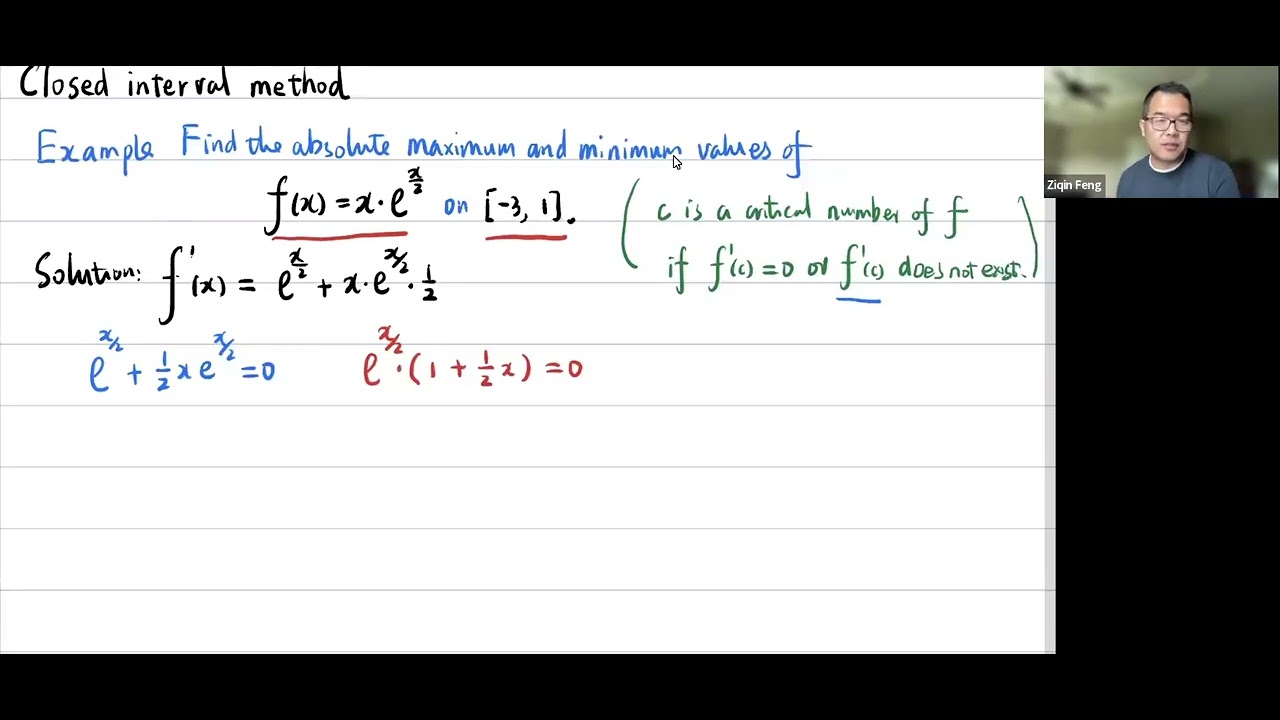 Closed interval method
Example Find the absolute maximum and minimum values of
f(x) = x · e^{x/2} on [-3, 1].
(c is a critical number of f
if f'(c) = 0 or f'(c) does not exist.)
Solution: f'(x) = e^{x/2} + x · e^{x/2} · 1/2
e^{x/2} + 1/2 x e^{x/2} = 0
e^{x/2} · (1 + 1/2 x) = 0
Ziqin Feng